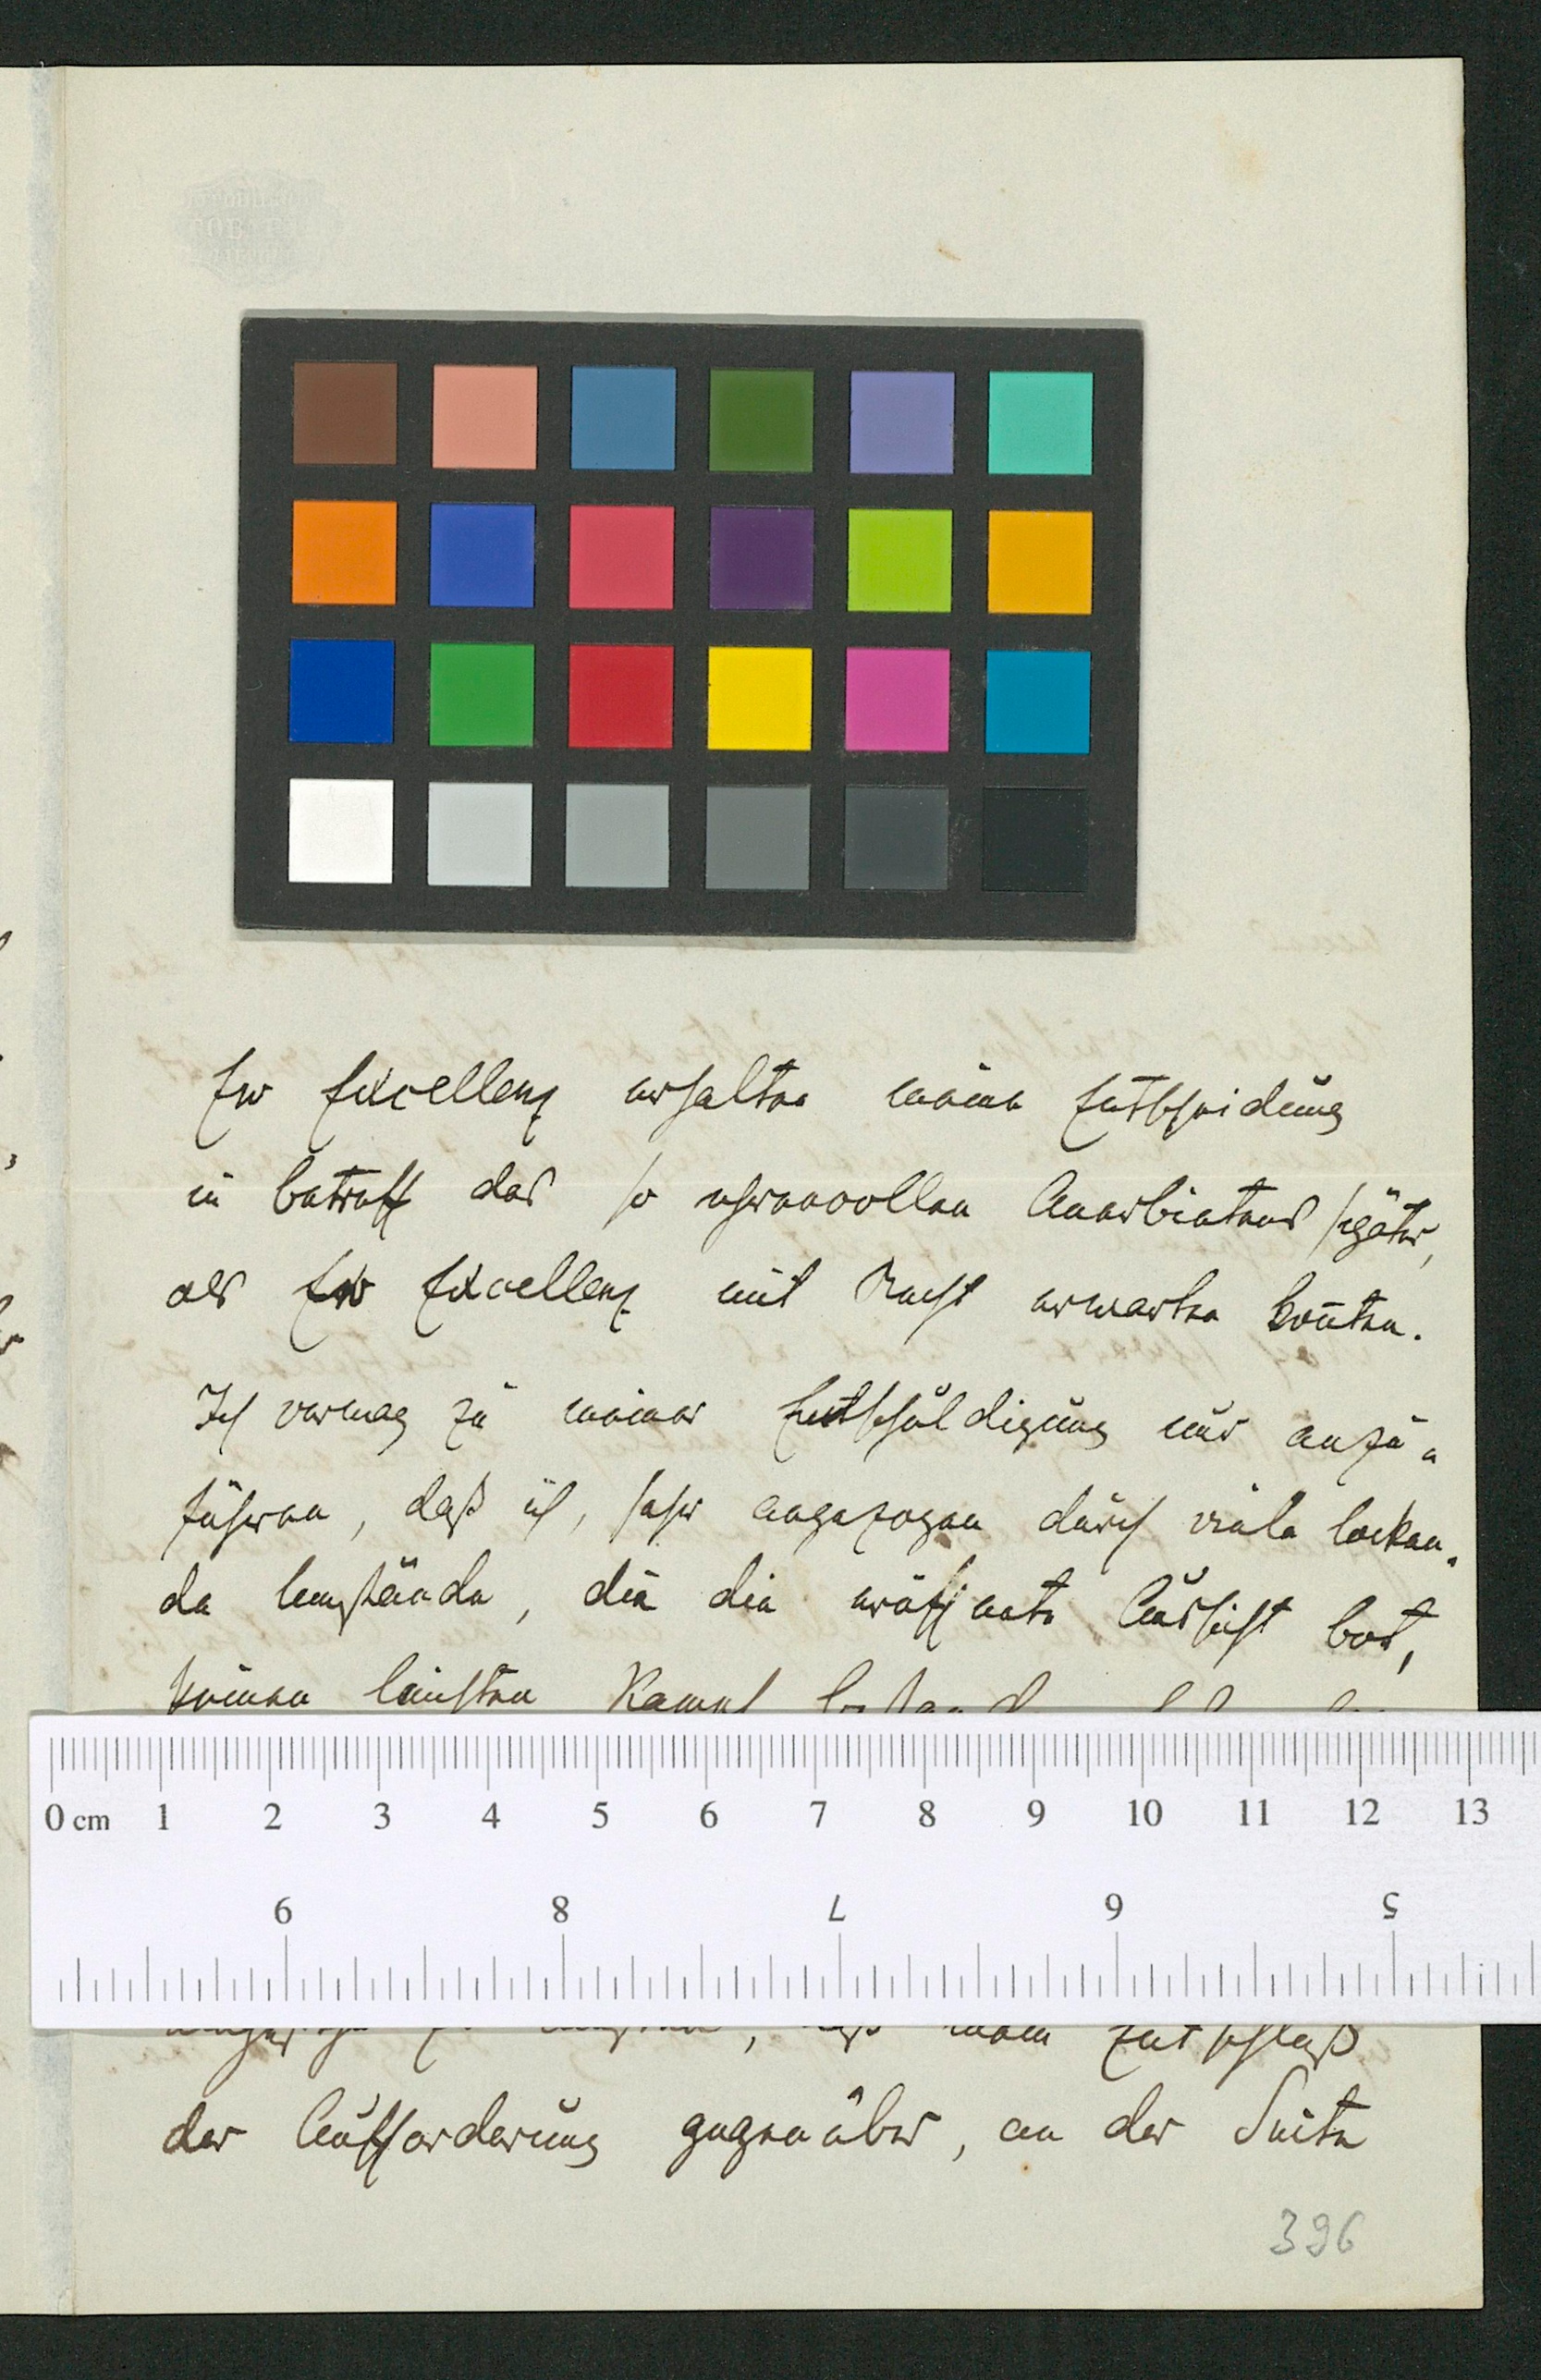 Ew Excellenz erhalten meine Entscheidung
in betreff des so ehrenvollen Anerbietens später,
als Ew Excellenz mit Recht erwarten konnten.
Ich vermag zu meiner Entschuldigung nur anzu-
führen, daß ich, sehr angezogen durch viele locken-
de Umstände, die die eröffnete Aussicht bot,
keinen leichten Kampf
0 cm 1 2 3 4 5 6 7 8 9 10 11 12 13
9 8 7 6 5
mein Entschluß
der Aufforderung gegenüber, an der Seite
396